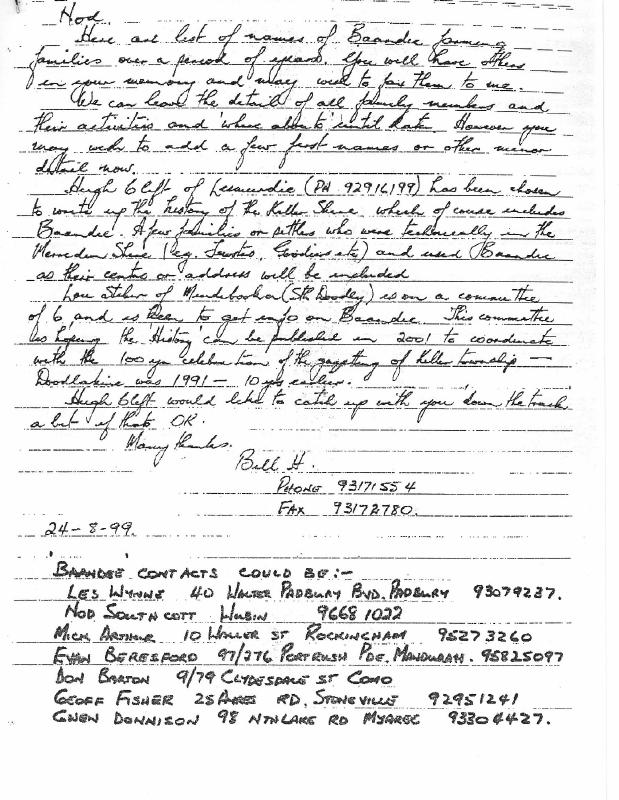 Nod.
Here are list of names of Baandee farming
families over a period of years. You will have others
in your memory and may wish to fax them to me.
We can leave the detail of all family members and
their activities and 'where abouts' until later. However you
may wish to add a few first names or other minor
detail now.
Hugh Clift of Lesmurdie (PH 92916199) has been chosen
to write up the history of the Keller Shire which of course includes
Baandee. A few families or settlers who were technically in the
Merredin Shire (eg. Goodier etc) and used Baandee
as their centre or address will be included
Lou of (Sth Doodly) is on a committee
of 6 and is keen to get info on Baandee. This committee
is hoping the 'History' can be published in 2001 to coordinate
with the 100 yr celebration of the gazetting of Keller township —
Doodlakine was 1991 — 10 yrs earlier.
Hugh Clift would like to catch up with you down the track
a bit if thats OK.
Many thanks.
Bill H.
PHONE 93171554
FAX 93172780.
24-8-99.
BAANDEE CONTACTS COULD BE:-
LES WYNNE 40 WALTER PADBURY BVD. PADBURY 93079237.
NOD SOUTHCOTT WUBIN 9668 1022
MICK ARTHUR 10 WALLER ST ROCKINGHAM 95273260
EVAN BERESFORD 97/276 PORTRUSH PDE, MANDURAH. 95825097
DON BARTON 9/79 CLYDESDALE ST COMO
GEOFF FISHER 25 AYRES RD, STONEVILLE 92951241
GWEN DONNISON 98 NTH LAKE RD MYAREE 93304427.